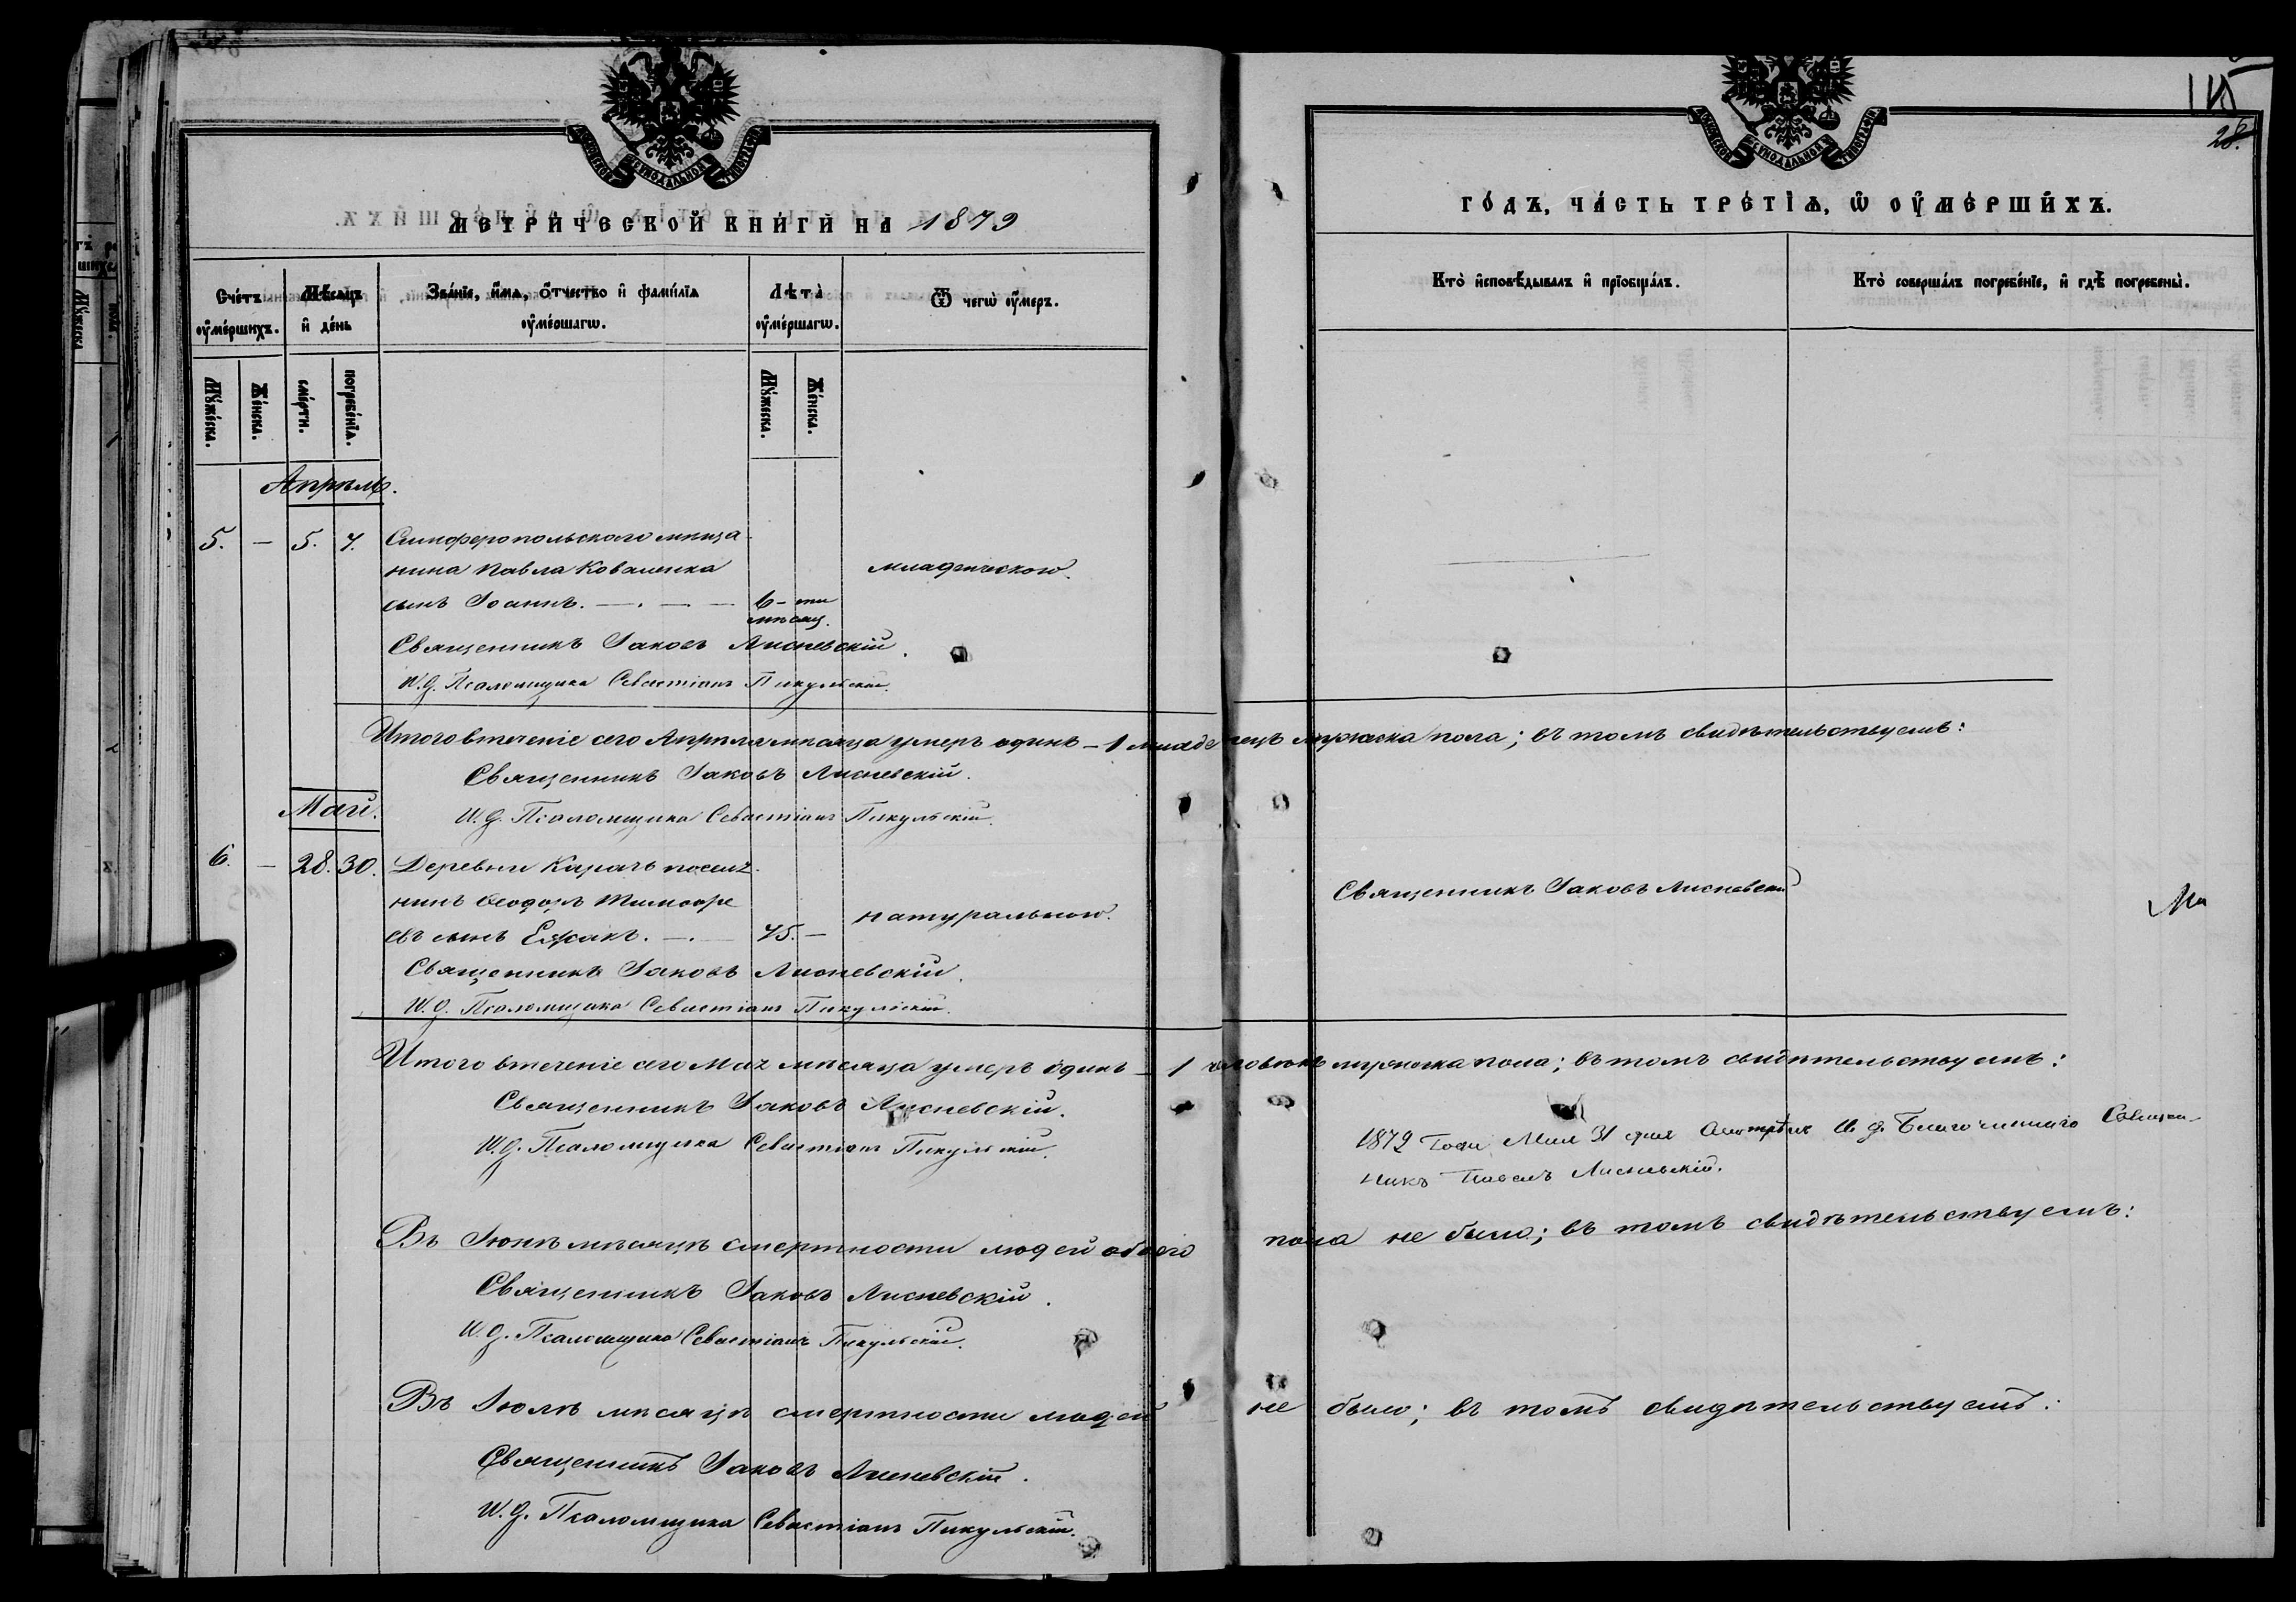 МЕТРИЧЕСКОЙ КНИГИ НА 1879
ГОДЪ, ЧАСТЬ ТРЕТІѦ, Ѡ ОУМЕРШИХЪ.
Счетъ оумершихъ.
Мѣсѧцъ и день
Званіе, имѧ, отчество и фамиліѧ оумершагѡ.
Лѣта оумершагѡ.
Ѿ чегѡ оумеръ.
Кто исповѣдывалъ и пріобщалъ.
Кто совершалъ погребеніе, и гдѣ погребены.
Мꙋжеска.
Женска.
смерти.
погребеніѧ.
Мꙋжеска.
Женска.
Апрѣль.
5. — 5. 7. Симферопольскаго мѣща
нина Павла Коваленка младенческою.
сынъ Іоаннъ. 6-ти
мѣсяц.
Священникъ Іаковъ Лисневскій.
И. д. Псаломщика Севастіанъ Пикульскій.
Итого втеченіе сего Апрѣля мѣсяца умеръ одинъ – 1 младенецъ мужеска пола; въ томъ свидѣтельствуемъ:
Священникъ Іаковъ Лисневскій.
И. д. Псаломщика Севастіанъ Пикульскій.
Май.
6. — 28. 30. Деревни Карачъ поселя
нинъ Ѳеодоръ Тимоѳе натуральною. Священникъ Іаковъ Лисневскій
евъ сынъ 75. —
Священникъ Іаковъ Лисневскій.
И. д. Псаломщика Севастіанъ Пикульскій.
Итого втеченіе сего Мая мѣсяца умеръ одинъ – 1 человѣкъ мужеска пола; въ томъ свидѣтельствуемъ:
Священникъ Іаковъ Лисневскій.
И. д. Псаломщика Севастіанъ Пикульскій.
1879 Года Мая 31 дня И. д. Благочиннаго Священ-
никъ Павелъ Лисневскій.
Въ Іюнѣ мѣсяцѣ смертности людей обоего пола не было; въ томъ свидѣтельствуемъ:
Священникъ Іаковъ Лисневскій.
И. д. Псаломщика Севастіанъ Пикульскій.
Въ Іюлѣ мѣсяцѣ смертности людей не было; въ томъ свидѣтельствуемъ:
Священникъ Іаковъ Лисневскій.
И. д. Псаломщика Севастіанъ Пикульскій.